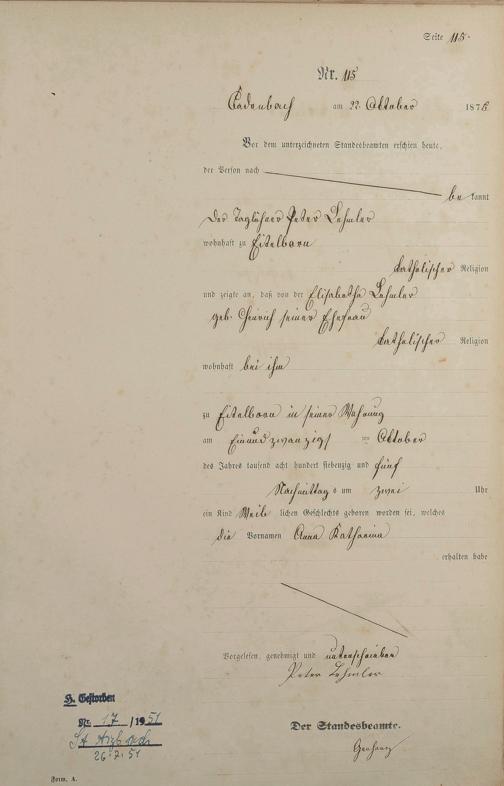 Seite 115.
Nr. 115
Cadenbach am 22 Oktober 1875
Vor dem unterzeichneten Standesbeamten erschien heute,
der Person nach
be kannt
der Taglöhner Peter Lehmler
wohnhaft zu Eitelborn
katholischer Religion
und zeigte an, daß von der Elisabetha Lehmler
geb. seiner Ehefrau
katholischer Religion
wohnhaft bei ihm
zu Eitelborn in seiner Wohnung
am Einundzwanzigst en Oktober
des Jahres tausend acht hundert siebenzig und fünf
Nachmittag s um zwei Uhr
ein Kind Weib lichen Geschlechts geboren worden sei, welches
die Vornamen Anna Katharina
erhalten habe
Vorgelesen, genehmigt und unterschrieben
Peter Lehmler
Der Standesbeamte.
H. Gestorben
Nr. 17 /1951
St. Arzbach
26.7.51
Form. A.